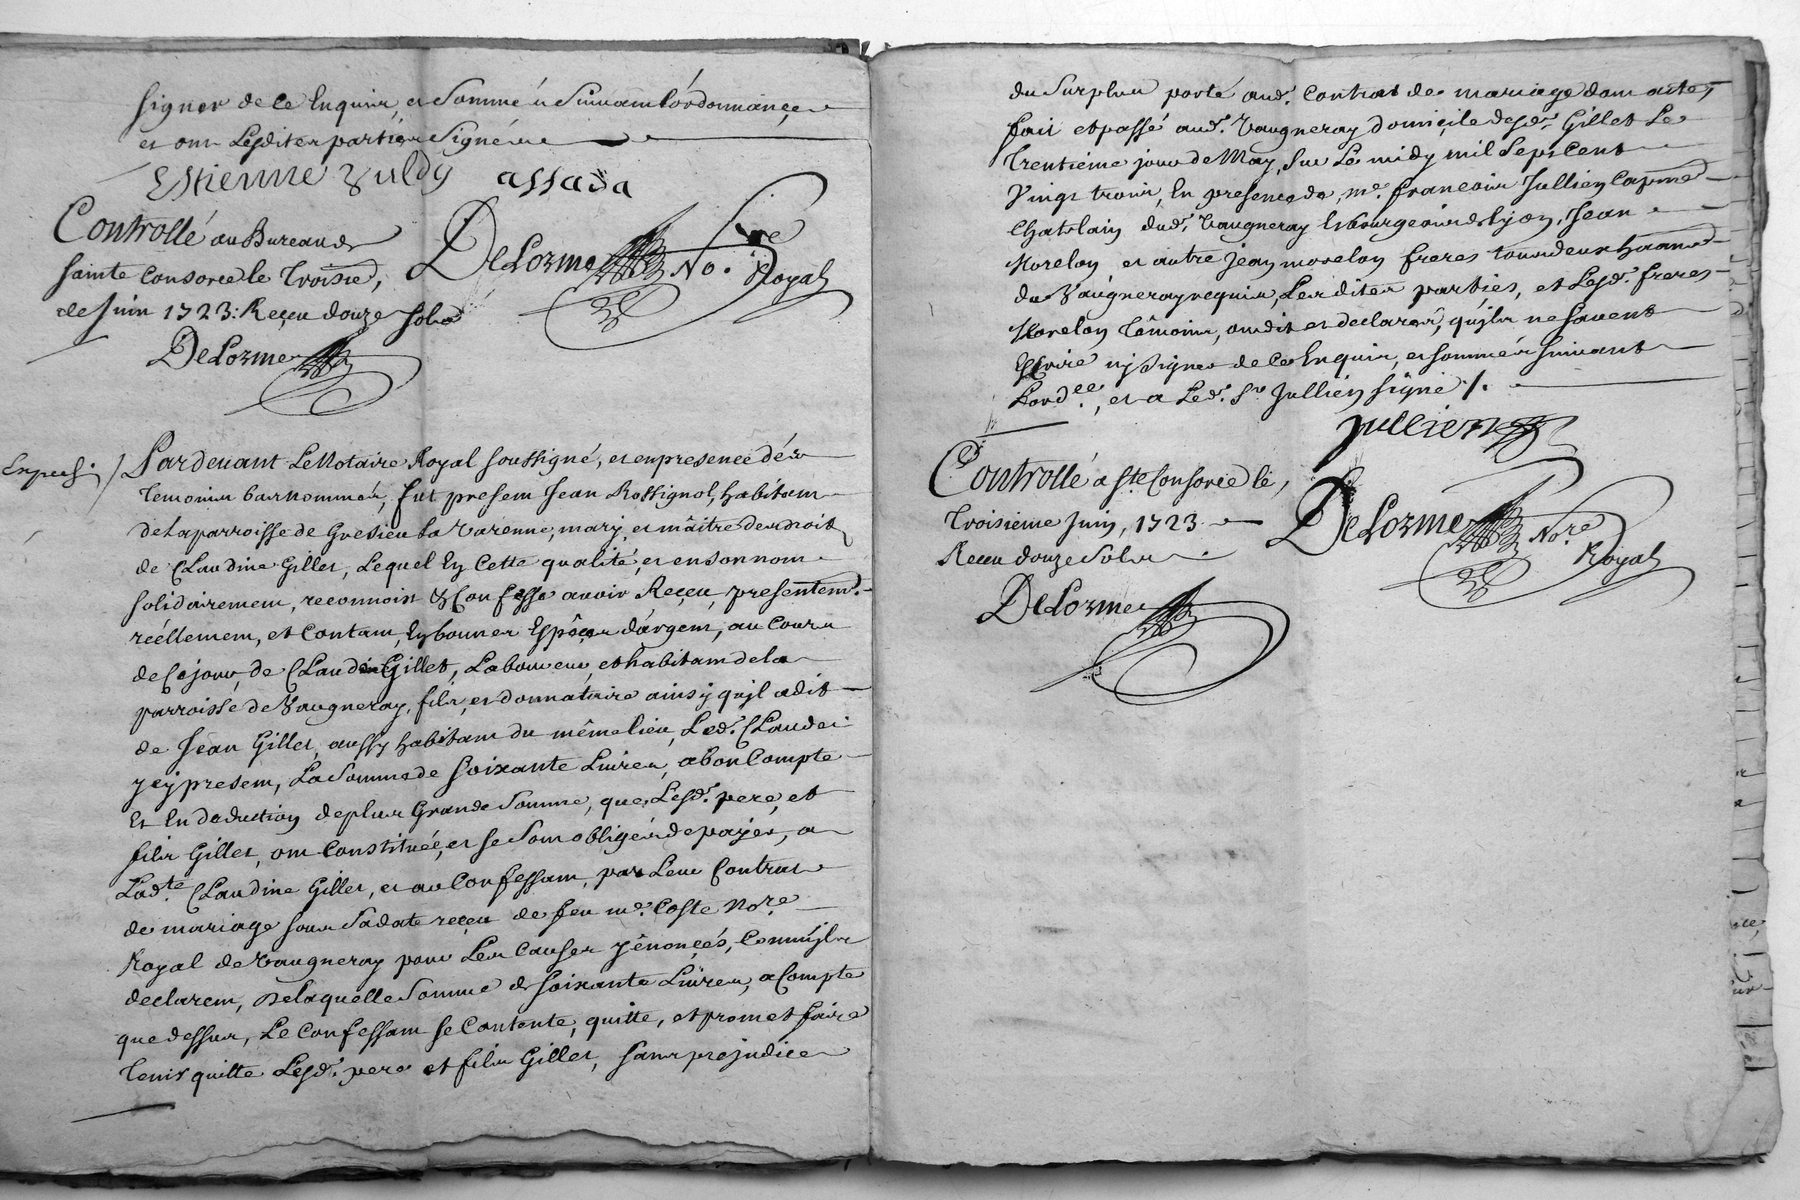 signer de ce Enquis, et sommés suivant l'ordonnance
et ont Lesdites parties signé
Estienne assada
Controllé au Bureau de
sainte Consorce le Troisie,
de Juin 1723: Reçeu douze sols
DeLorme No.re Royal
DeLorme
Pardevant Le Notaire Royal soussigné, et en presence des
temoins bas nommés, fut present Jean Rossignol, habitant
de la parroisse de Gresieu la Varenne, mary, et maître des droits
de Claudine Gillet, Lequel En Cette qualité, et en son nom
solidairement, reconnoist & Confesse avoir Reçeu, presentemt.
réellement, et Contant, En bonnes Espêces d'argent, au Cours
de Ce jour, de Claude Gillet, Laboureur, et habitant de la
parroisse de Vaugneray, fils, et donnataire ainsy qu'il a dit
de Jean Gillet, aussy habitant du même lieu, Led. Claude
ycy present, La somme de soixante Livres, a bon Compte
Et En deduction de plus Grande somme, que Lesd. pere, et
fils Gillet, ont Constituée, et se sont obligés de payer, a
Lad.te Claudine Gillet, et au Confessant, par Leur Contrat
de mariage sous sa date reçeu de feu me. Coste No.re
Royal de Vaugneray pour Les Causes y énonçés, Comm'ils
declarent, De laquelle somme de soixante Livres, a Compte
que dessus, Le Confessant se Contente, quitte, et promet faire
tenir quitte Lesd. pere et fils Gillet, sans prejudice
du surplus porté aud. Contrat de mariage dont acte,
fait et passé aud. Vaugneray domicile desd. Gillet Le
Trentiéme jour de May, sur Le midy mil sept Cent
Vingt trois, En presence de, me. francois Jullien Capne.
Chatelain dud. Vaugneray Et bourgeois de Lyon, Jean
Morelon, et autre Jean morelon freres tous deux
de Vaugneray requis, Lesdites parties, et Lesd. freres
Morelon têmoins, ont dit et declarer, qu'ils ne savent
Escrire ny signer de ce Enquis, et sommés suivant
Lord.ce, et a Led. Sr. Jullien signé /.
jullien
Controllé a Ste Consorce le,
Troisieme Juin, 1723
Reçeu douze sols
DeLorme No.re Royal
DeLorme